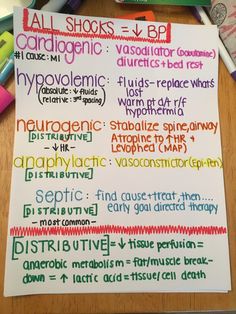 ALL SHOCKS = ↓ BP
cardiogenic: vasodilator (Dobutamine)
#1 cause: MI diuretics + bed rest
hypovolemic: fluids - replace what's
(absolute: ↓ fluids) lost
(relative: 3rd spacing) warm pt d/t r/f
hypothermia
neurogenic: Stabalize spine, airway
[DISTRIBUTIVE] Atropine to ↑HR +
- ↓HR - Levophed (MAP)
anaphylactic: vasoconstrictor (Epi-Pen)
[DISTRIBUTIVE]
septic: find cause + treat, then....
[DISTRIBUTIVE] early goal directed therapy
- most common -
[DISTRIBUTIVE] = ↓ tissue perfusion =
anaerobic metabolism = fat/muscle break-
down = ↑ lactic acid = tissue/cell death